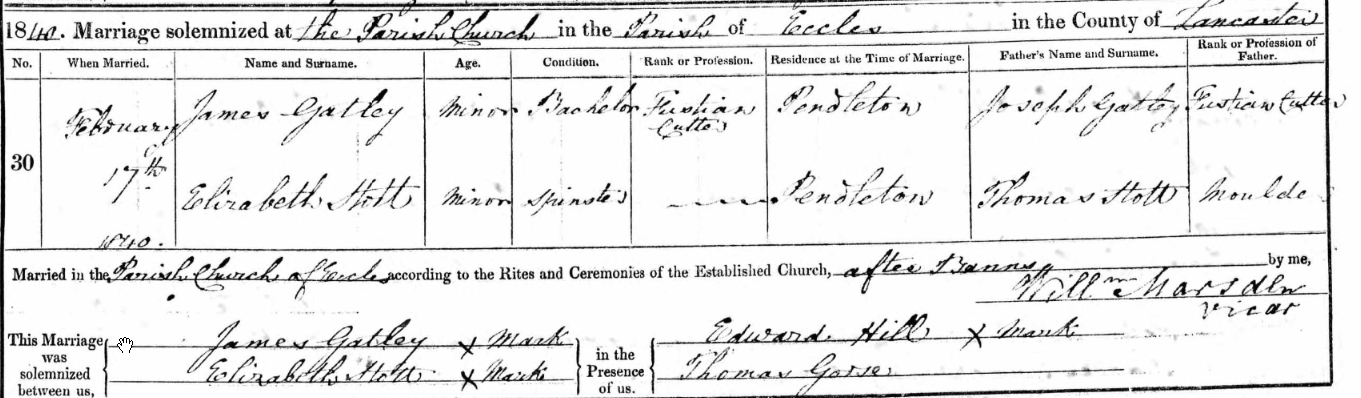 1840. Marriage solemnized at the Parish Church in the Parish of Eccles in the County of Lancaster
No. When Married. Name and Surname. Age. Condition. Rank or Profession. Residence at the Time of Marriage. Father's Name and Surname. Rank or Profession of Father.
30 February 17th 1840. James Gatley Minor Bachelor Fustian Cutter Pendleton Joseph Gatley Fustian Cutter
Elizabeth Stott Minor Spinster Pendleton Thomas Stott Moulder
Married in the Parish Church of Eccles according to the Rites and Ceremonies of the Established Church, after Banns by me,
Willm Marsden
Vicar
This Marriage was solemnized between us, James Gatley X Mark in the Presence of us. Edward Hill X Mark
Elizabeth Stott X Mark Thomas Gorse